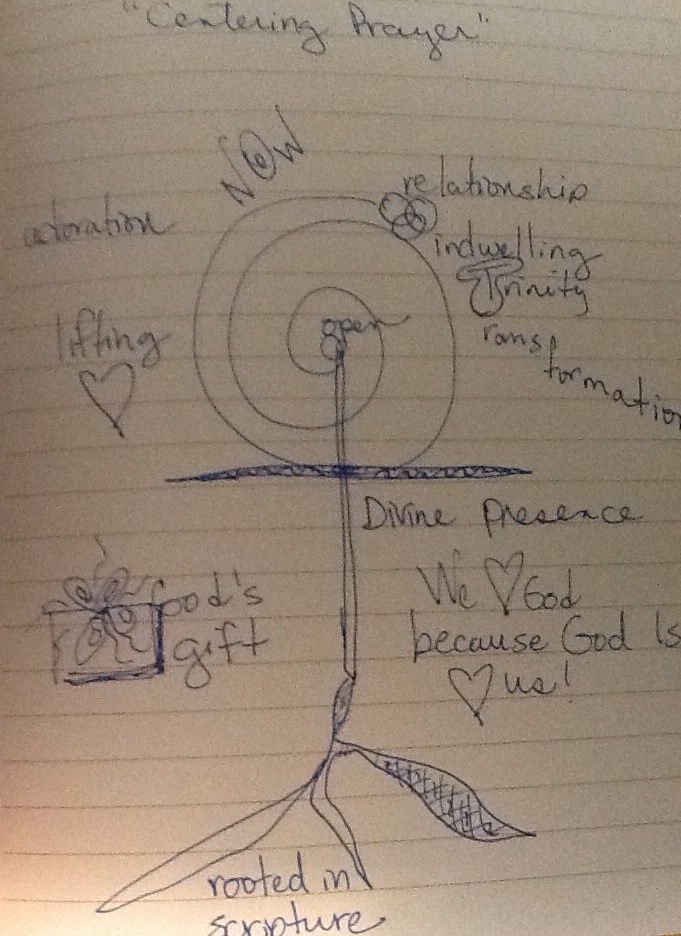 "Centering Prayer"
NOW
relationship
adoration
indwelling
Trinity
open
lifting
rans
formation
Divine Presence
We ♡ God
God's
because God Is
gift
♡ us!
rooted in
scripture